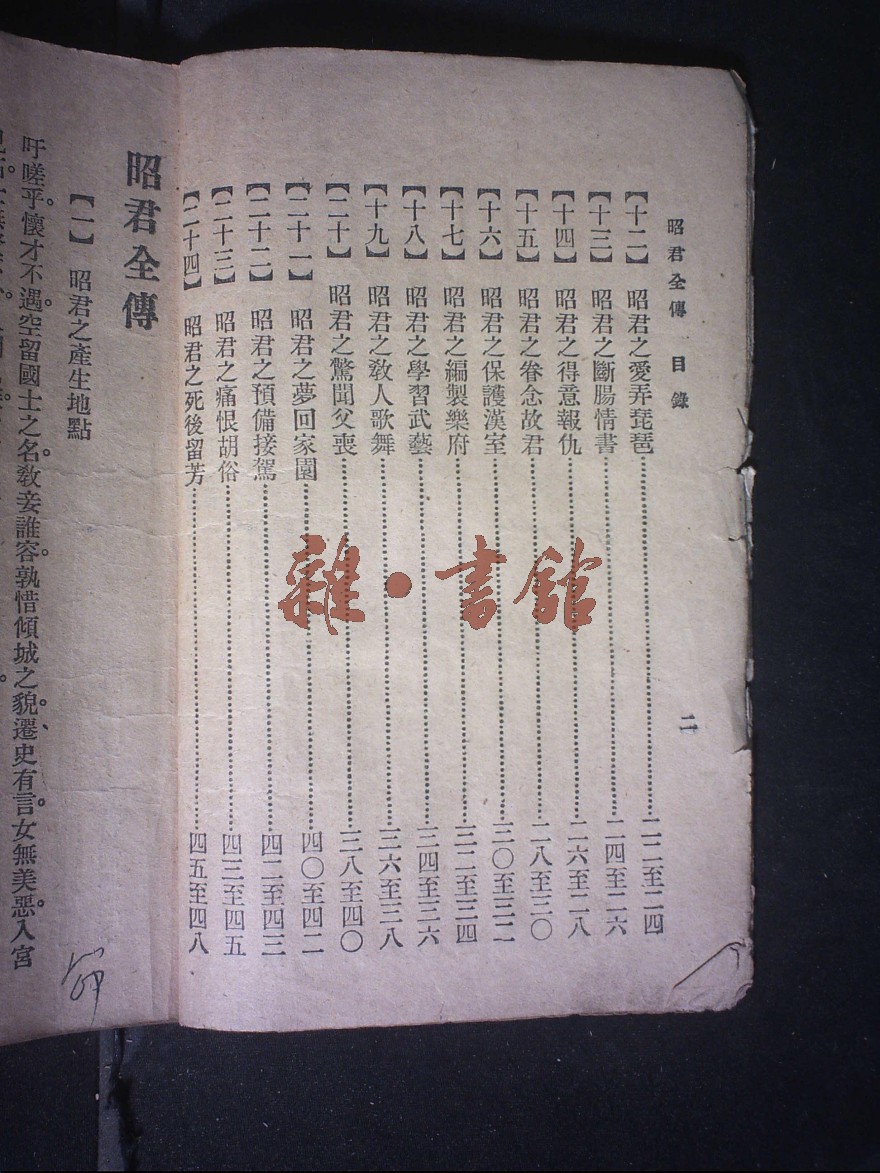 昭君全傳 目錄 二
【十二】 昭君之愛弄琵琶……二二至二四
【十三】 昭君之斷腸情書……二四至二六
【十四】 昭君之得意報仇……二六至二八
【十五】 昭君之眷念故君……二八至三〇
【十六】 昭君之保護漢室……三〇至三二
【十七】 昭君之編製樂府……三二至三四
【十八】 昭君之學習武藝……三四至三六
【十九】 昭君之敎人歌舞……三六至三八
【二十】 昭君之驚聞父喪……三八至四〇
【二十一】 昭君之夢回家園……四〇至四二
【二十二】 昭君之預備接駕……四二至四三
【二十三】 昭君之痛恨胡俗……四三至四五
【二十四】 昭君之死後留芳……四五至四八
雜·書館
昭君全傳
【一】 昭君之產生地點
吁嗟乎。懷才不遇。空留國士之名。敎妾誰容。孰惜傾城之貌。遷史有言。女無美惡。入宮